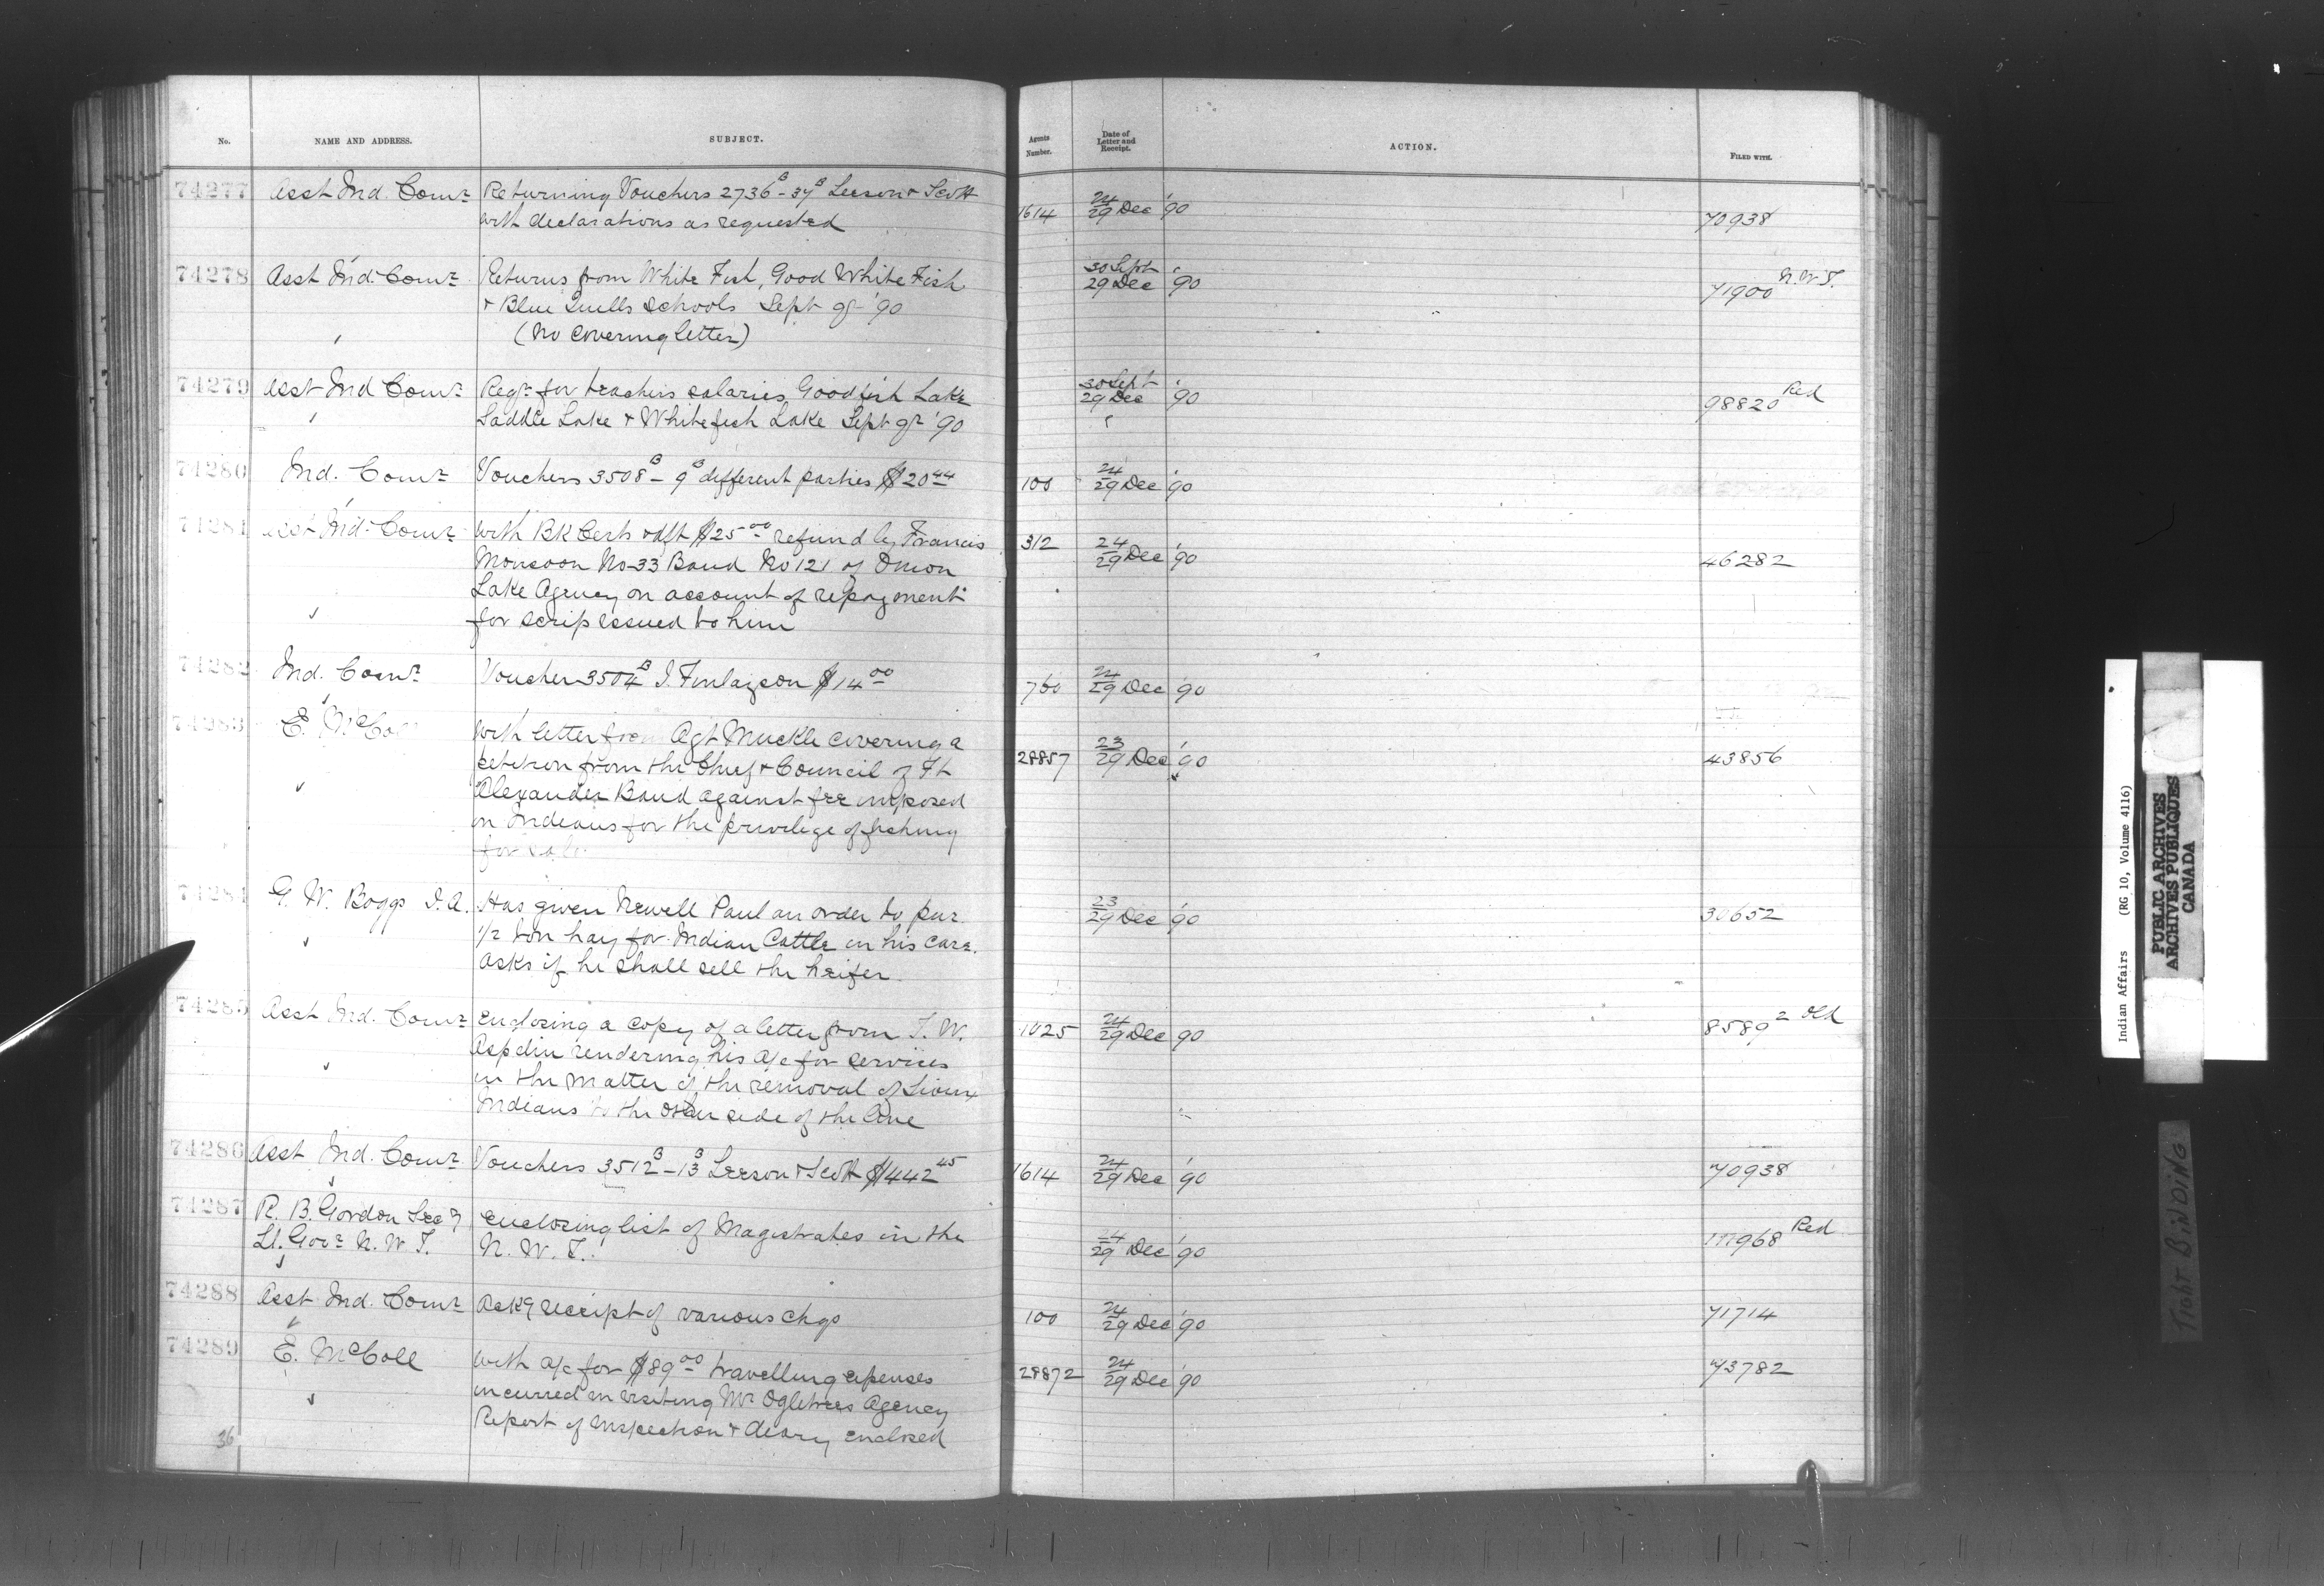 No. NAME AND ADDRESS. SUBJECT. Agents Number. Date of Letter and Receipt. ACTION. FILED WITH.
74277 Asst Ind. Comr Returning Vouchers 2736B - 37B Leeson & Scott 1614 24/29 Dec '90 70938
with declarations as requested
74278 Asst Ind. Comr Returns from White Fish, Good White Fish 30 Sept 29 Dec '90 71900 N.W.T.
& Blue Quills Schools Sept qr '90
(No covering letter)
74279 Asst Ind Comr Reqr for teachers salaries Goodfish Lake 30 Sept 29 Dec '90 98820 Red
Saddle Lake & Whitefish Lake Sept qr '90
74280 Ind. Comr Vouchers 3508B - 9B different parties $20 44 100 24/29 Dec '90
74281 Asst Ind. Comr With BK Cert & dft $25 00 refund by Francis 312 24/29 Dec '90 46282
Monsoon No 33 Band No 121 of Onion
Lake Agency on account of repayment
for scrip issued to him
74282 Ind. Comr Voucher 3504B J. Finlayson $14 00 760 24/29 Dec '90
74283 E. McCol With letter from Agt Muckle covering a 28857 23/29 Dec '90 43856
petition from the Chief & Council of Ft
Alexander Band against fee imposed
on Indians for the privilege of fishing
for sale
74284 G. W. Boggs I.A. Has given Newell Paul an order to pur 23/29 Dec '90 30652
1/2 ton hay for Indian Cattle in his care.
Asks if he shall sell the heifer
74285 Asst Ind. Comr Enclosing a copy of a letter from T. W. 1025 24/29 Dec '90 8589 2 Old
Aspdin rendering his a/c for services
in the matter of the removal of Sioux
Indians to the other side of the line
74286 Asst Ind. Comr Vouchers 3512B - 13B Leeson & Scott $442 45 1614 24/29 Dec '90 70938
74287 R. B. Gordon Secy Enclosing list of Magistrates in the 24/29 Dec '90 Red
Lt. Govr N. W. T. N. W. T.
74288 Asst Ind. Comr Ackg receipt of various chqs 100 24/29 Dec '90 71714
74289 E. McColl With a/c for $89 00 travelling expenses 28872 24/29 Dec '90 73782
incurred in visiting Mr Ogletrees Agency
Report of Inspection & diary enclosed
36
Indian Affairs (RG 10, Volume 4116)
PUBLIC ARCHIVES
ARCHIVES PUBLIQUES
CANADA
TIGHT BINDING